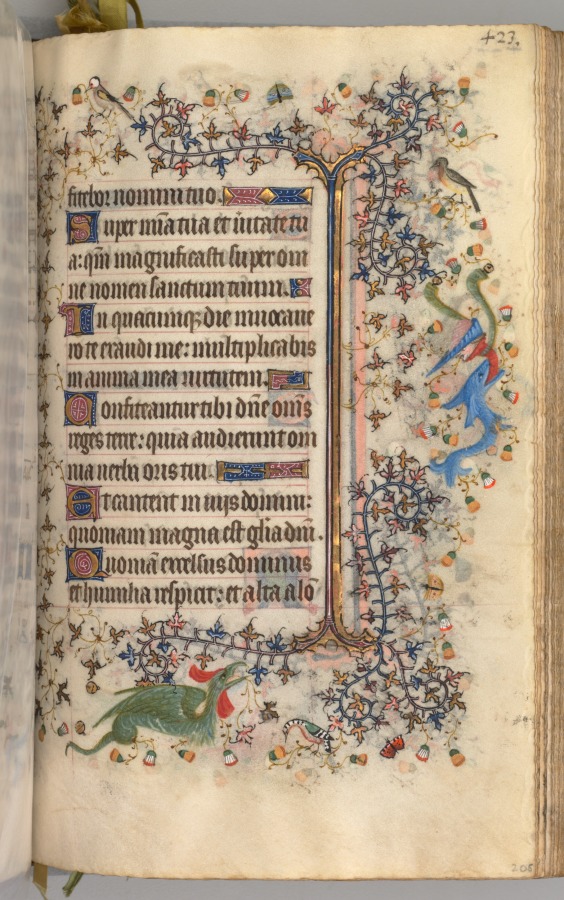 423.
fitebor nomini tuo.
Super mĩa tua et ũitate tu
a: qm̃ magnificasti super om
ne nomen sanctum tuum.
In quacumqꝫ die inuocaue
ro te exaudi me: multiplicabis
in anima mea uirtutem.
Confiteantur tibi dñe om̃s
reges terre: quia audierunt om
nia uerba oris tui.
Et cantent in uiys domini:
quoniam magna est gl̃ia dñi.
Quoniã excelsus dominus
et humilia respicit: et alta a lõ
206